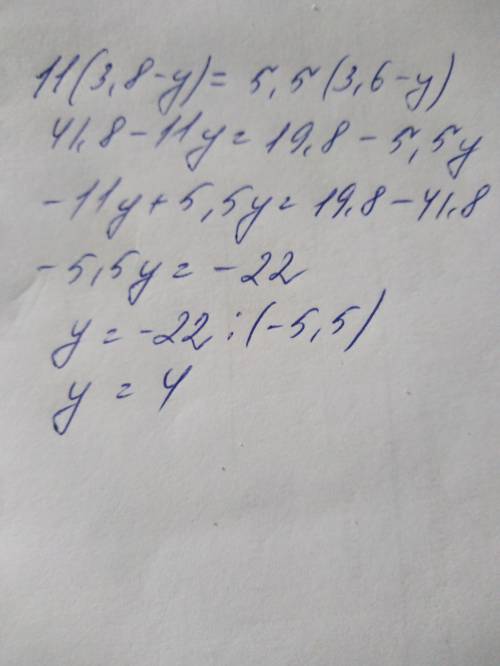 11(3,8-y)= 5,5(3,6-y)
41,8-11y= 19,8-5,5y
-11y+5,5y= 19,8-41,8
-5,5y= -22
y = -22:(-5,5)
y = 4